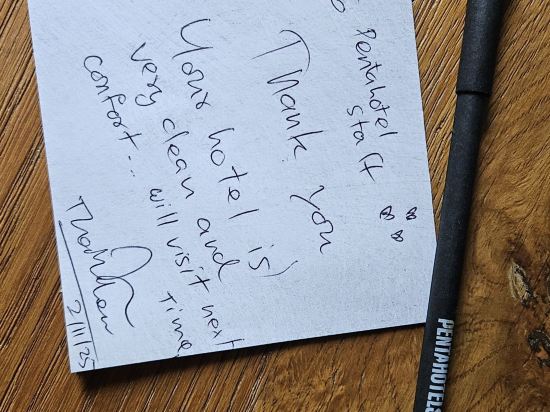 Pentahotel
staff
Thank you
Your hotel is
very clean and
confort... will visit next
Time
2/11/25
PENTAHOTELS